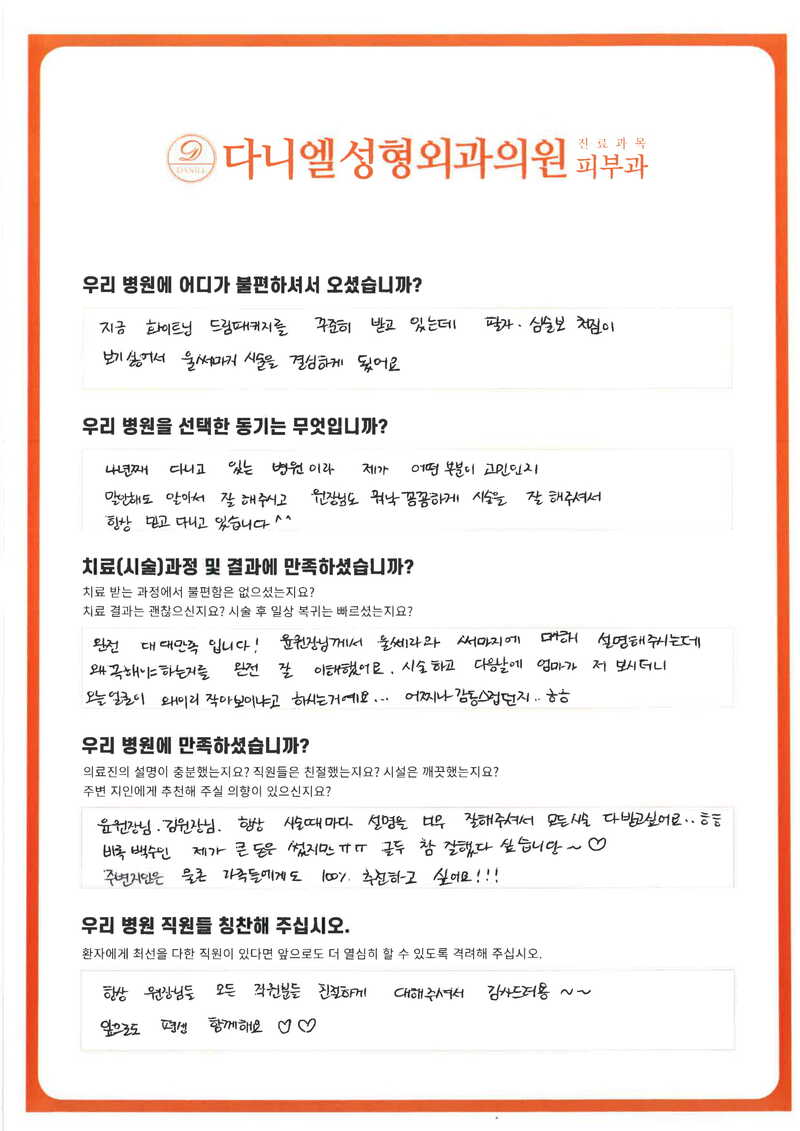 DANIEL
다니엘성형외과의원
진료과목
피부과
우리 병원에 어디가 불편하셔서 오셨습니까?
지금 화이트닝 드림패키지를 꾸준히 받고 있는데 팔자. 심술보 처짐이
보기싫어서 울써마지 시술을 결심하게 됬어요
우리 병원을 선택한 동기는 무엇입니까?
4년째 다니고 있는 병원이라 제가 어떤 부분이 고민인지
말안해도 알아서 잘 해주시고 원장님도 워낙 꼼꼼하게 시술을 잘 해주셔서
항상 믿고 다니고 있습니다^^
치료(시술)과정 및 결과에 만족하셨습니까?
치료 받는 과정에서 불편함은 없으셨는지요?
치료 결과는 괜찮으신지요? 시술 후 일상 복귀는 빠르셨는지요?
완전 대대만족 입니다! 윤원장님께서 울쎄라와 써마지에 대해 설명해주시는데
왜꼭해야하는지를 완전 잘 이해했어요. 시술하고 다음날에 엄마가 저 보시더니
오늘얼굴이 왜이리 작아보이냐고 하시는거예요... 어찌나 감동스럽던지.. ㅎㅎ
우리 병원에 만족하셨습니까?
의료진의 설명이 충분했는지요? 직원들은 친절했는지요? 시설은 깨끗했는지요?
주변 지인에게 추천해 주실 의향이 있으신지요?
윤원장님. 김원장님. 항상 시술때마다 설명을 너무 잘해주셔서 모든시술 다받고싶어요.. ㅎㅎ
비록 백수인 제가 큰 돈을 썼지만ㅠㅠ 글두 참 잘했다 싶습니단~♡
주변지인은 물론 가족들에게도 100% 추천하고 싶어요!!!
우리 병원 직원들 칭찬해 주십시오.
환자에게 최선을 다한 직원이 있다면 앞으로도 더 열심히 할 수 있도록 격려해 주십시오.
항상 원장님들 모든 직원분들 친절하게 대해주셔서 감사드려용~~
앞으로도 평생 함께해요♡♡